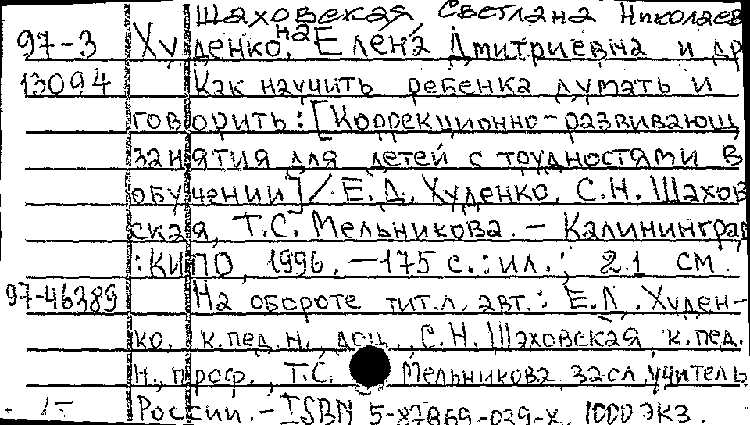 Шаховская Светлана Николаев
на
97-3 Худенко, Елена Дмитриевна и др
13094 Как научить ребенка думать и
говорить : [Коррекционно-развивающ.
занятия для детей с трудностями в
обучении] / Е.Д. Худенко, С.Н. Шахов
ская, Т.С. Мельникова. – Калининград
: КИПО, 1996. – 175 с. : ил. ; 21 см
97-46389 На обороте тит.л. авт.: Е.Д. Худен-
ко, к.пед.н., доц., С.Н. Шаховская, к.пед.
н., проф., Т.С. Мельникова засл. учитель
России. – ISBN 5-87869-039-X, 1000 экз.